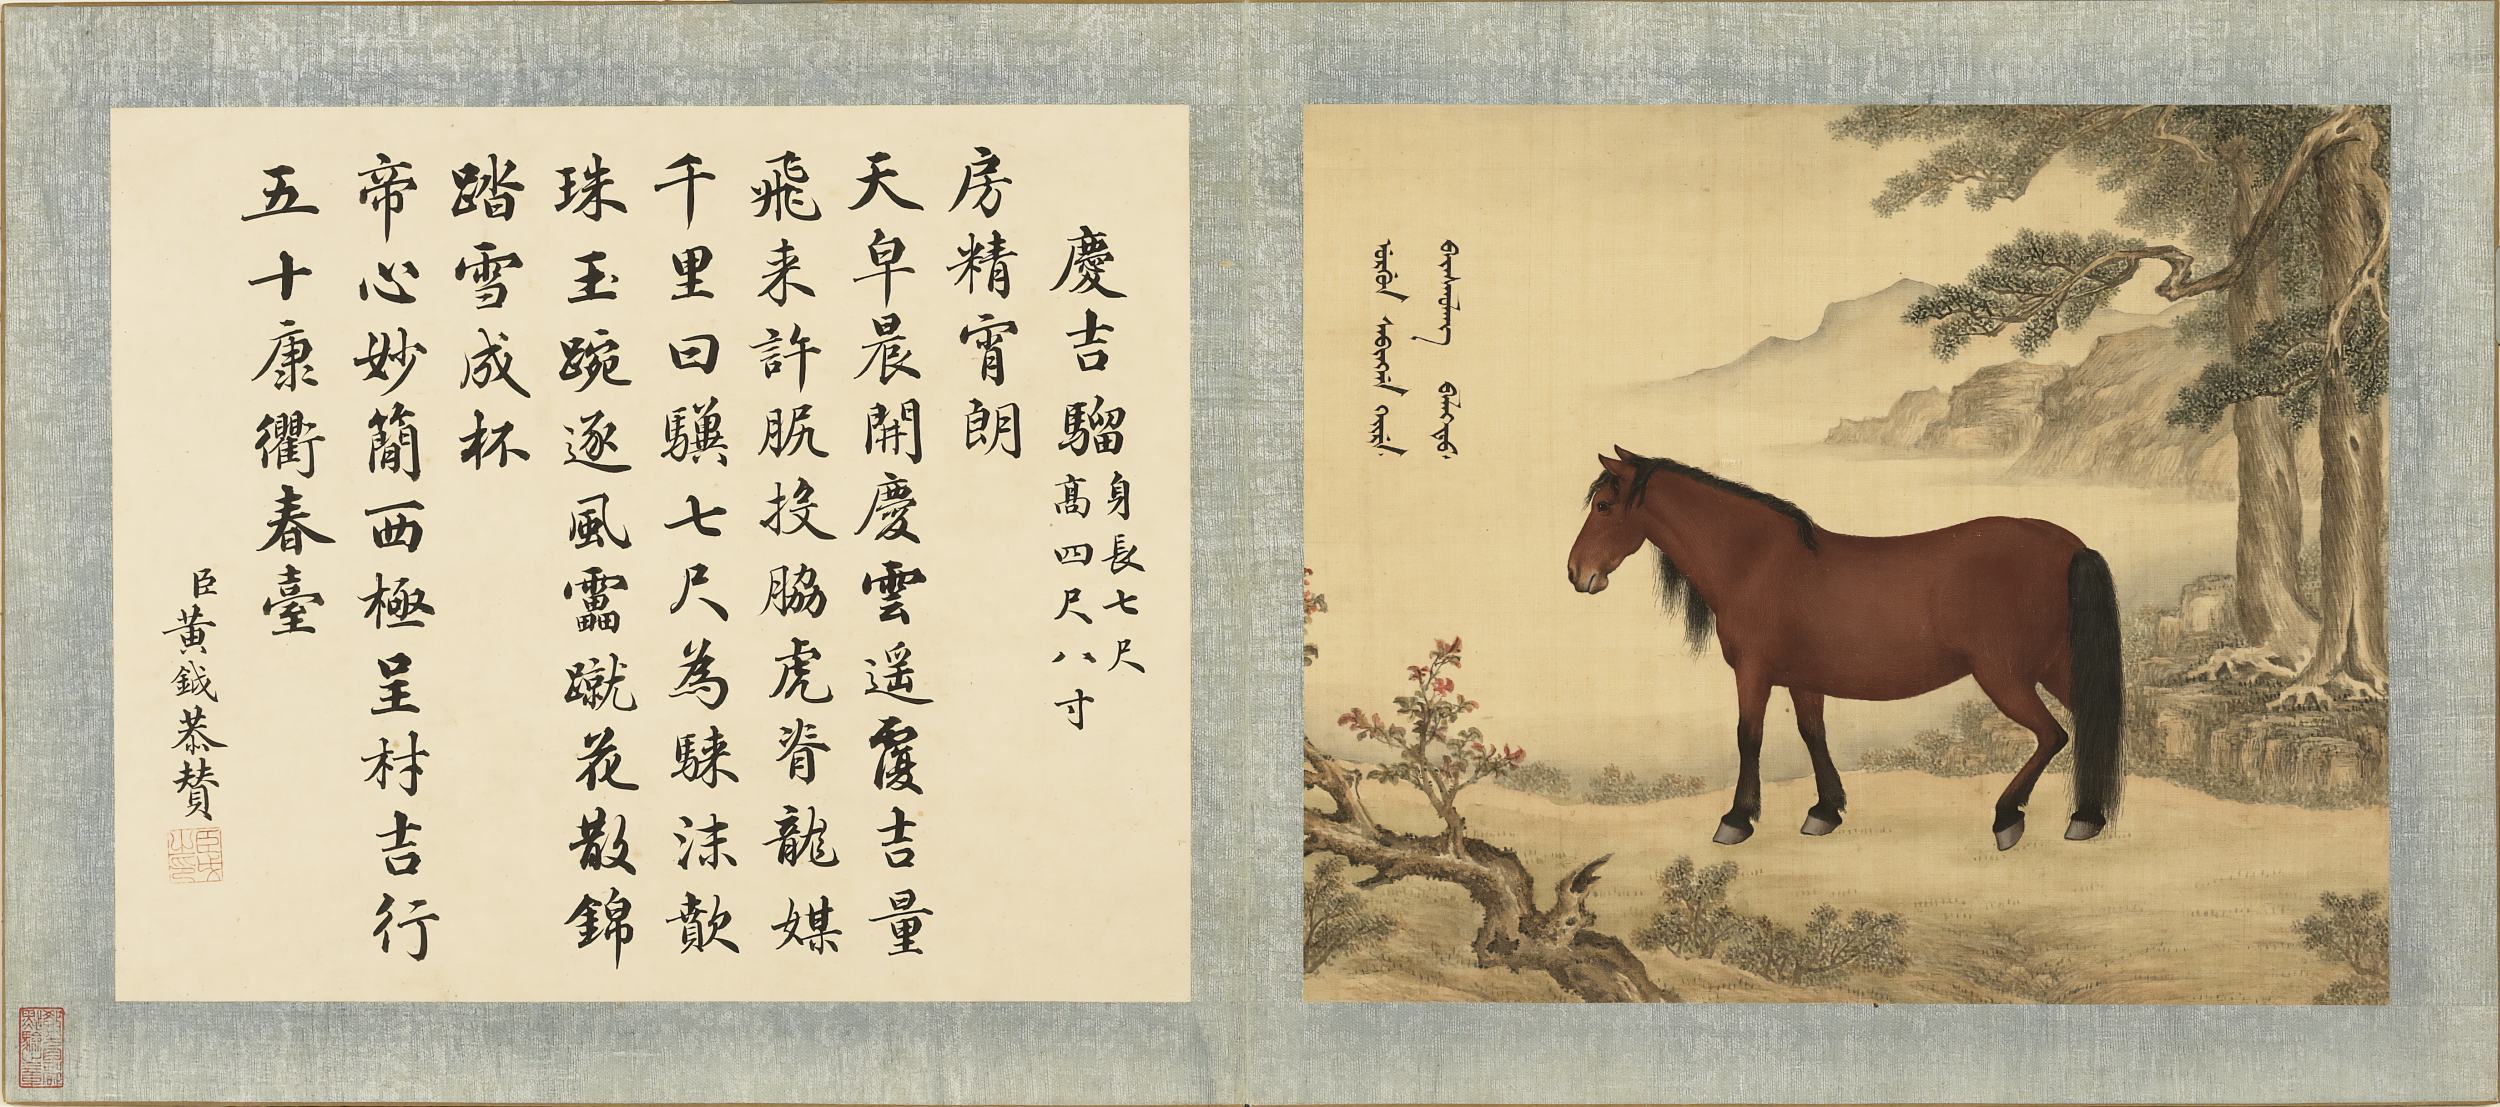 慶吉騮
身長七尺
高四尺八寸
房精宵朗
天皁晨開慶雲遥覆吉量
飛来許㞘投脇虎脊龍媒
千里曰驥七尺為騋沫歕
珠玉踠逐風靁蹴花散錦
踏雪成杯
帝心妙簡西極呈材吉行
五十康衢春臺
臣黄鉞恭賛